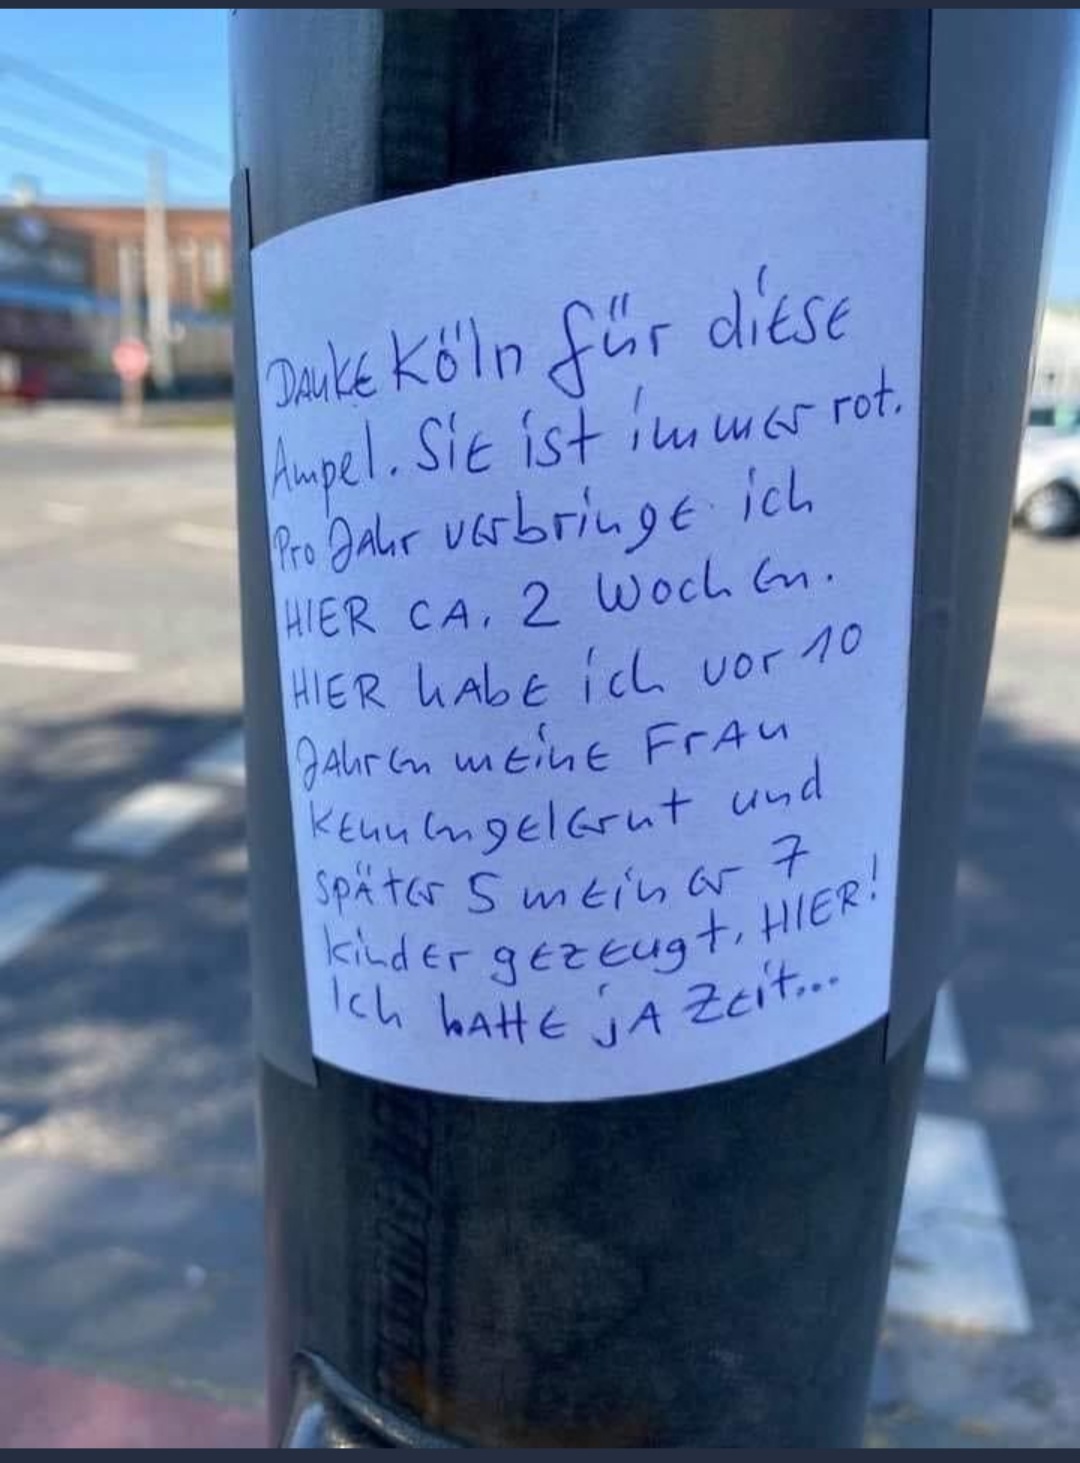 DANKE Köln für diese
Ampel. Sie ist immer rot.
Pro Jahr verbringe ich
HIER CA. 2 Wochen.
HIER habe ich vor 10
Jahren meine Frau
kennengelernt und
später 5 meiner 7
kinder gezeugt. HIER!
Ich hatte ja Zeit...